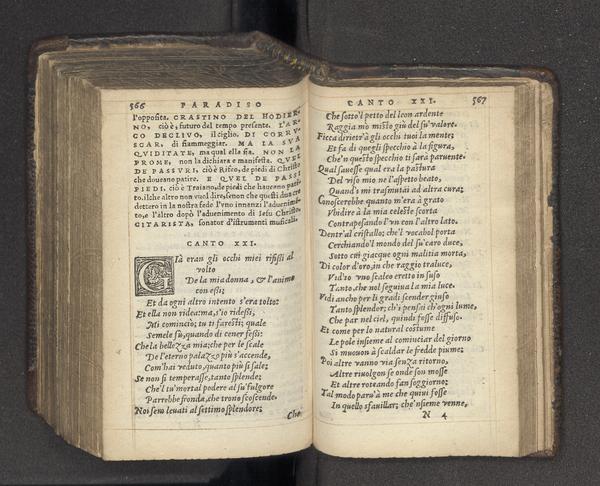 566
PARADISO
l'opposita. CRASTINO DEL HODIER-
NO, cioè, futuro del tempo presente. L'AR-
CO DECLIVO, il ciglio. DI CORRV-
SCAR, di fiammeggiar. MA LA SVA
QVIDITATE, ma qual ella sia. NON LA
PROME, non la dichiara e manifesta. QVEL
DE PASSVRI, cioè Rifeo, de piedi di Christo
che doueano patire. E QVEL DE PASSI
PIEDI, cioè Traiano, de piedi che haueano pati-
to. il che altro non vuol dire, senon che questi duo cre
dettero in la nostra fede l'vno innanzi l'aduenimē-
to, e l'altro dopò l'aduenimento di Iesu Christo.
CITARISTA, sonator d'istrumenti musicali.
CANTO XXI.
GIà eran gli occhi miei rifissi al
volto
De la mia donna, & l'animo
con essi;
Et da ogni altro intento s'era tolto:
Et ella non ridea: ma, s'io ridessi,
Mi comincio; tu ti faresti; quale
Semele sù, quando di cener fessi:
Che la bellezza mia; che per le scale
De l'eterno palazzo più s'accende,
Com'hai veduto, quanto più si sale;
Se non si temperasse, tanto splende;
Che'l tu' mortal podere al su' fulgore
Parrebbe fronda, che trono scoscende.
Noi sem leuati al settimo splendore;
Che
CANTO XXI.
567
Che sotto'l petto del leon ardente
Raggia mò misto giù del su' valore.
Ficca dirietr'à gli occhi tuoi la mente;
Et fa di quegli specchio à la figura,
Che'n questo specchio ti sarà paruente.
Qual sauesse qual era la pastura
Del viso mio ne l'aspetto beato,
Quand'i mi trasmutai ad altra cura;
Conoscerebbe quanto m'era à grato
Vbidire à la mia celeste scorta
Contrapesando l'vn con l'altro lato.
Dentr'al cristallo; che'l vocabol porta
Cerchiando'l mondo del su' caro duce,
Sotto cui giacque ogni malitia morta,
Di color d'oro, in che raggio traluce,
Vid'io vno scaleo eretto in suso
Tanto, che nol seguiua la mia luce.
Vidi ancho per li gradi scender giuso
Tanto splendor; ch'i pensai ch'ogni lume,
Che par nel ciel, quindi fosse diffuso.
Et come per lo natural costume
Le pole insieme al cominciar del giorno
Si muouon à scaldar le fredde piume;
Poi altre vanno via senza ritorno,
Altre riuolgon se onde son mosse
Et altre roteando fan soggiorno;
Tal modo paru'à me che quiui fosse
In quello sfauillar; che'nsieme venne,
N 4